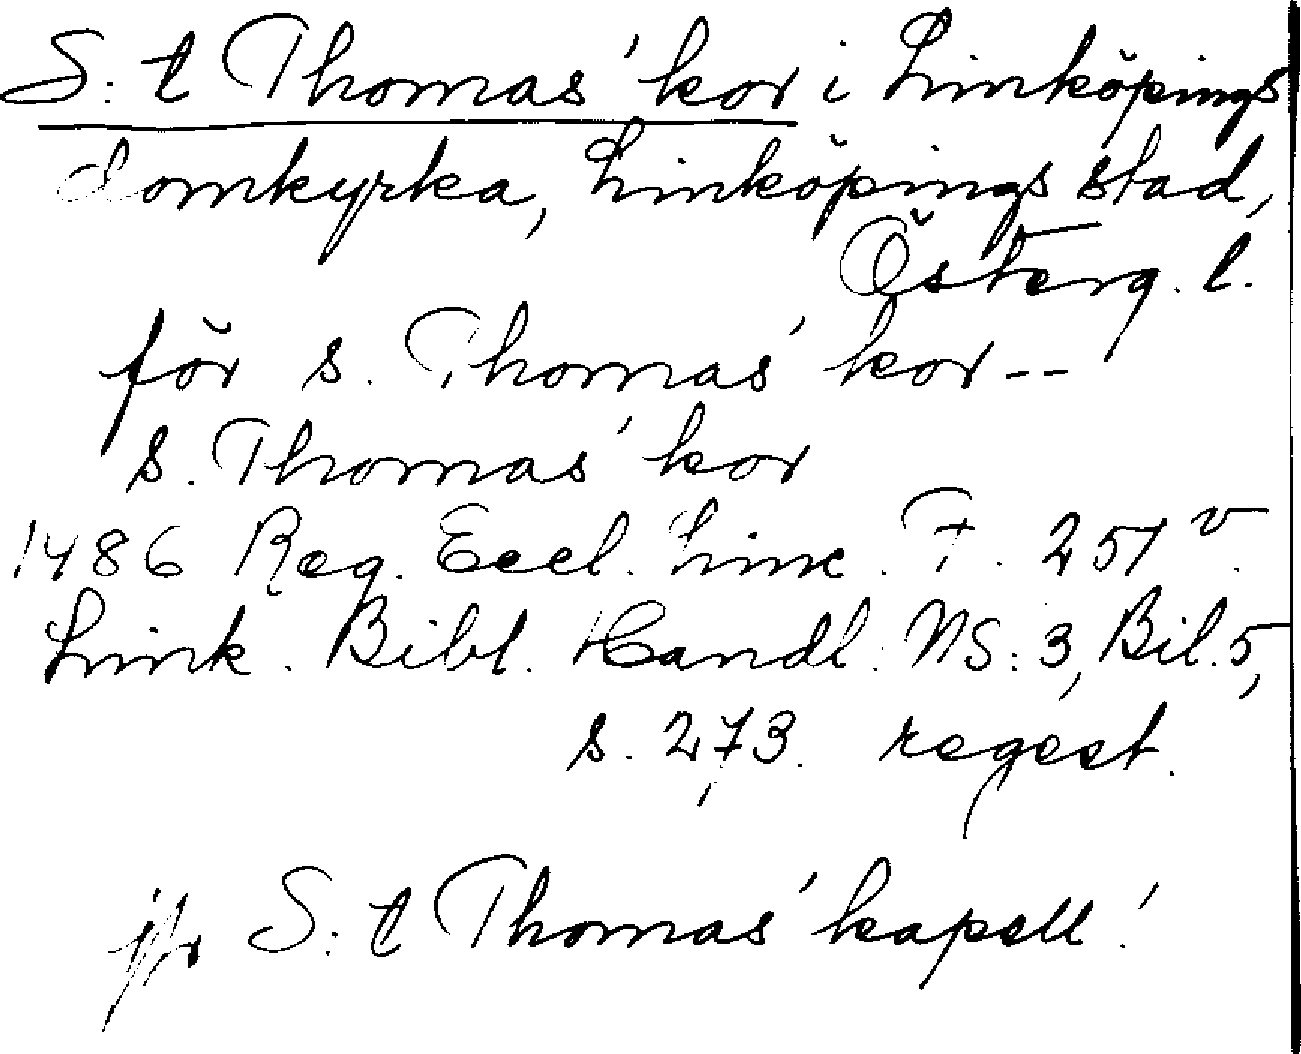 S:t Thomas' kor i Linköpings
domkyrka, Linköpings stad,
Österg. l.
för s. Thomas' kor --
s. Thomas' kor
1486 Reg. Eccl. Linc. F. 251 v.
Link. Bibl. Handl. NS: 3, Bil. 5,
s. 273. regest.
jfr S:t Thomas' kapell!